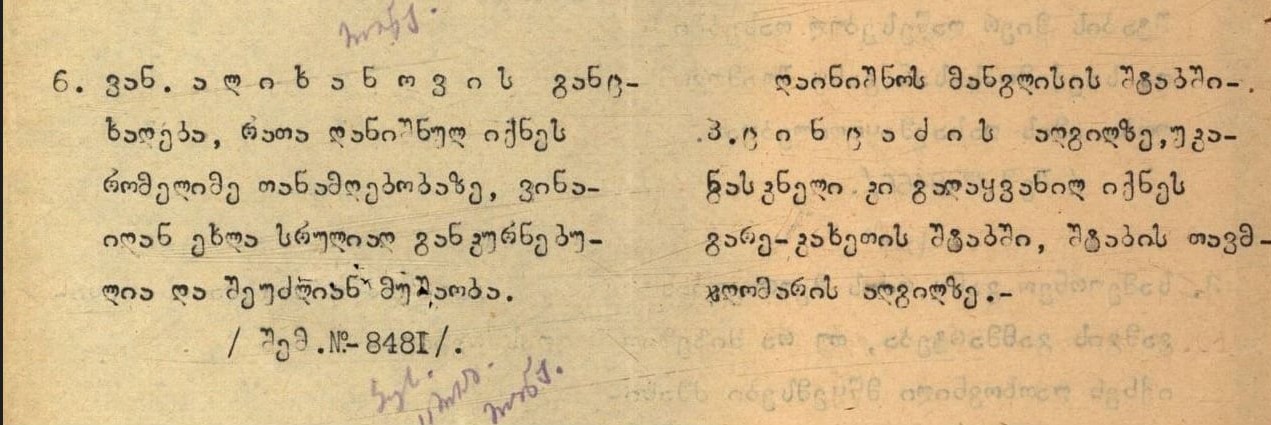 6. ვან. ა ლ ი ხ ა ნ ო ვ ი ს განც-
ხადება, რათა დანიშნულ იქნეს
რომელიმე თანამდებობაზე, ვინა-
იდან ეხლა სრულიად განკურნებუ-
ლია და შეუძლიან მუშაობა.
/ შემ.№-848I/.
დაინიშნოს მანგლისის შტაბში-.
პ.ც ი ნ ც ა ძ ი ს ადგილზე,უკა-
ნასკნელი კი გადაყვანილ იქნეს
გარე-კახეთის შტაბში, შტაბის თავმ-
ჯდომარის ადგილზე.-